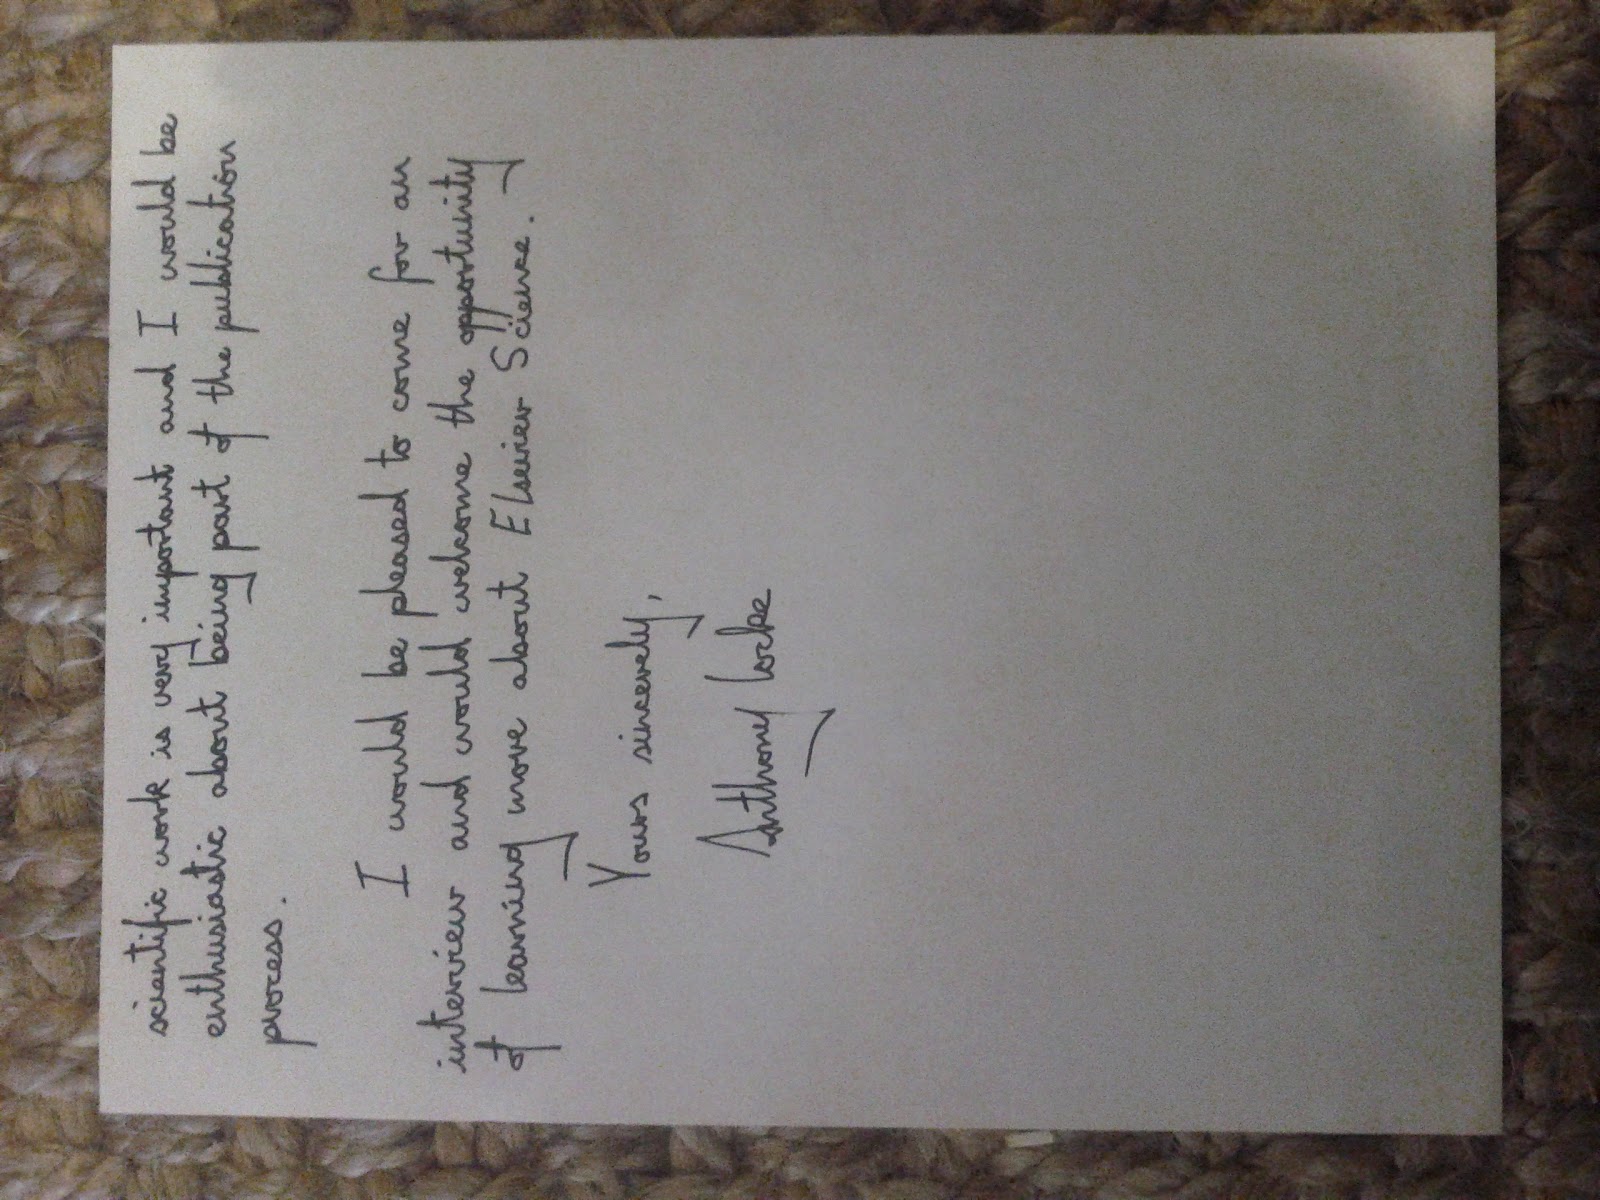 scientific work is very important and I would be
enthusiastic about being part of the publication
process.
I would be pleased to come for an
interview and would welcome the opportunity
of learning more about Elsevier Science.
Yours sincerely,
Anthony Locke